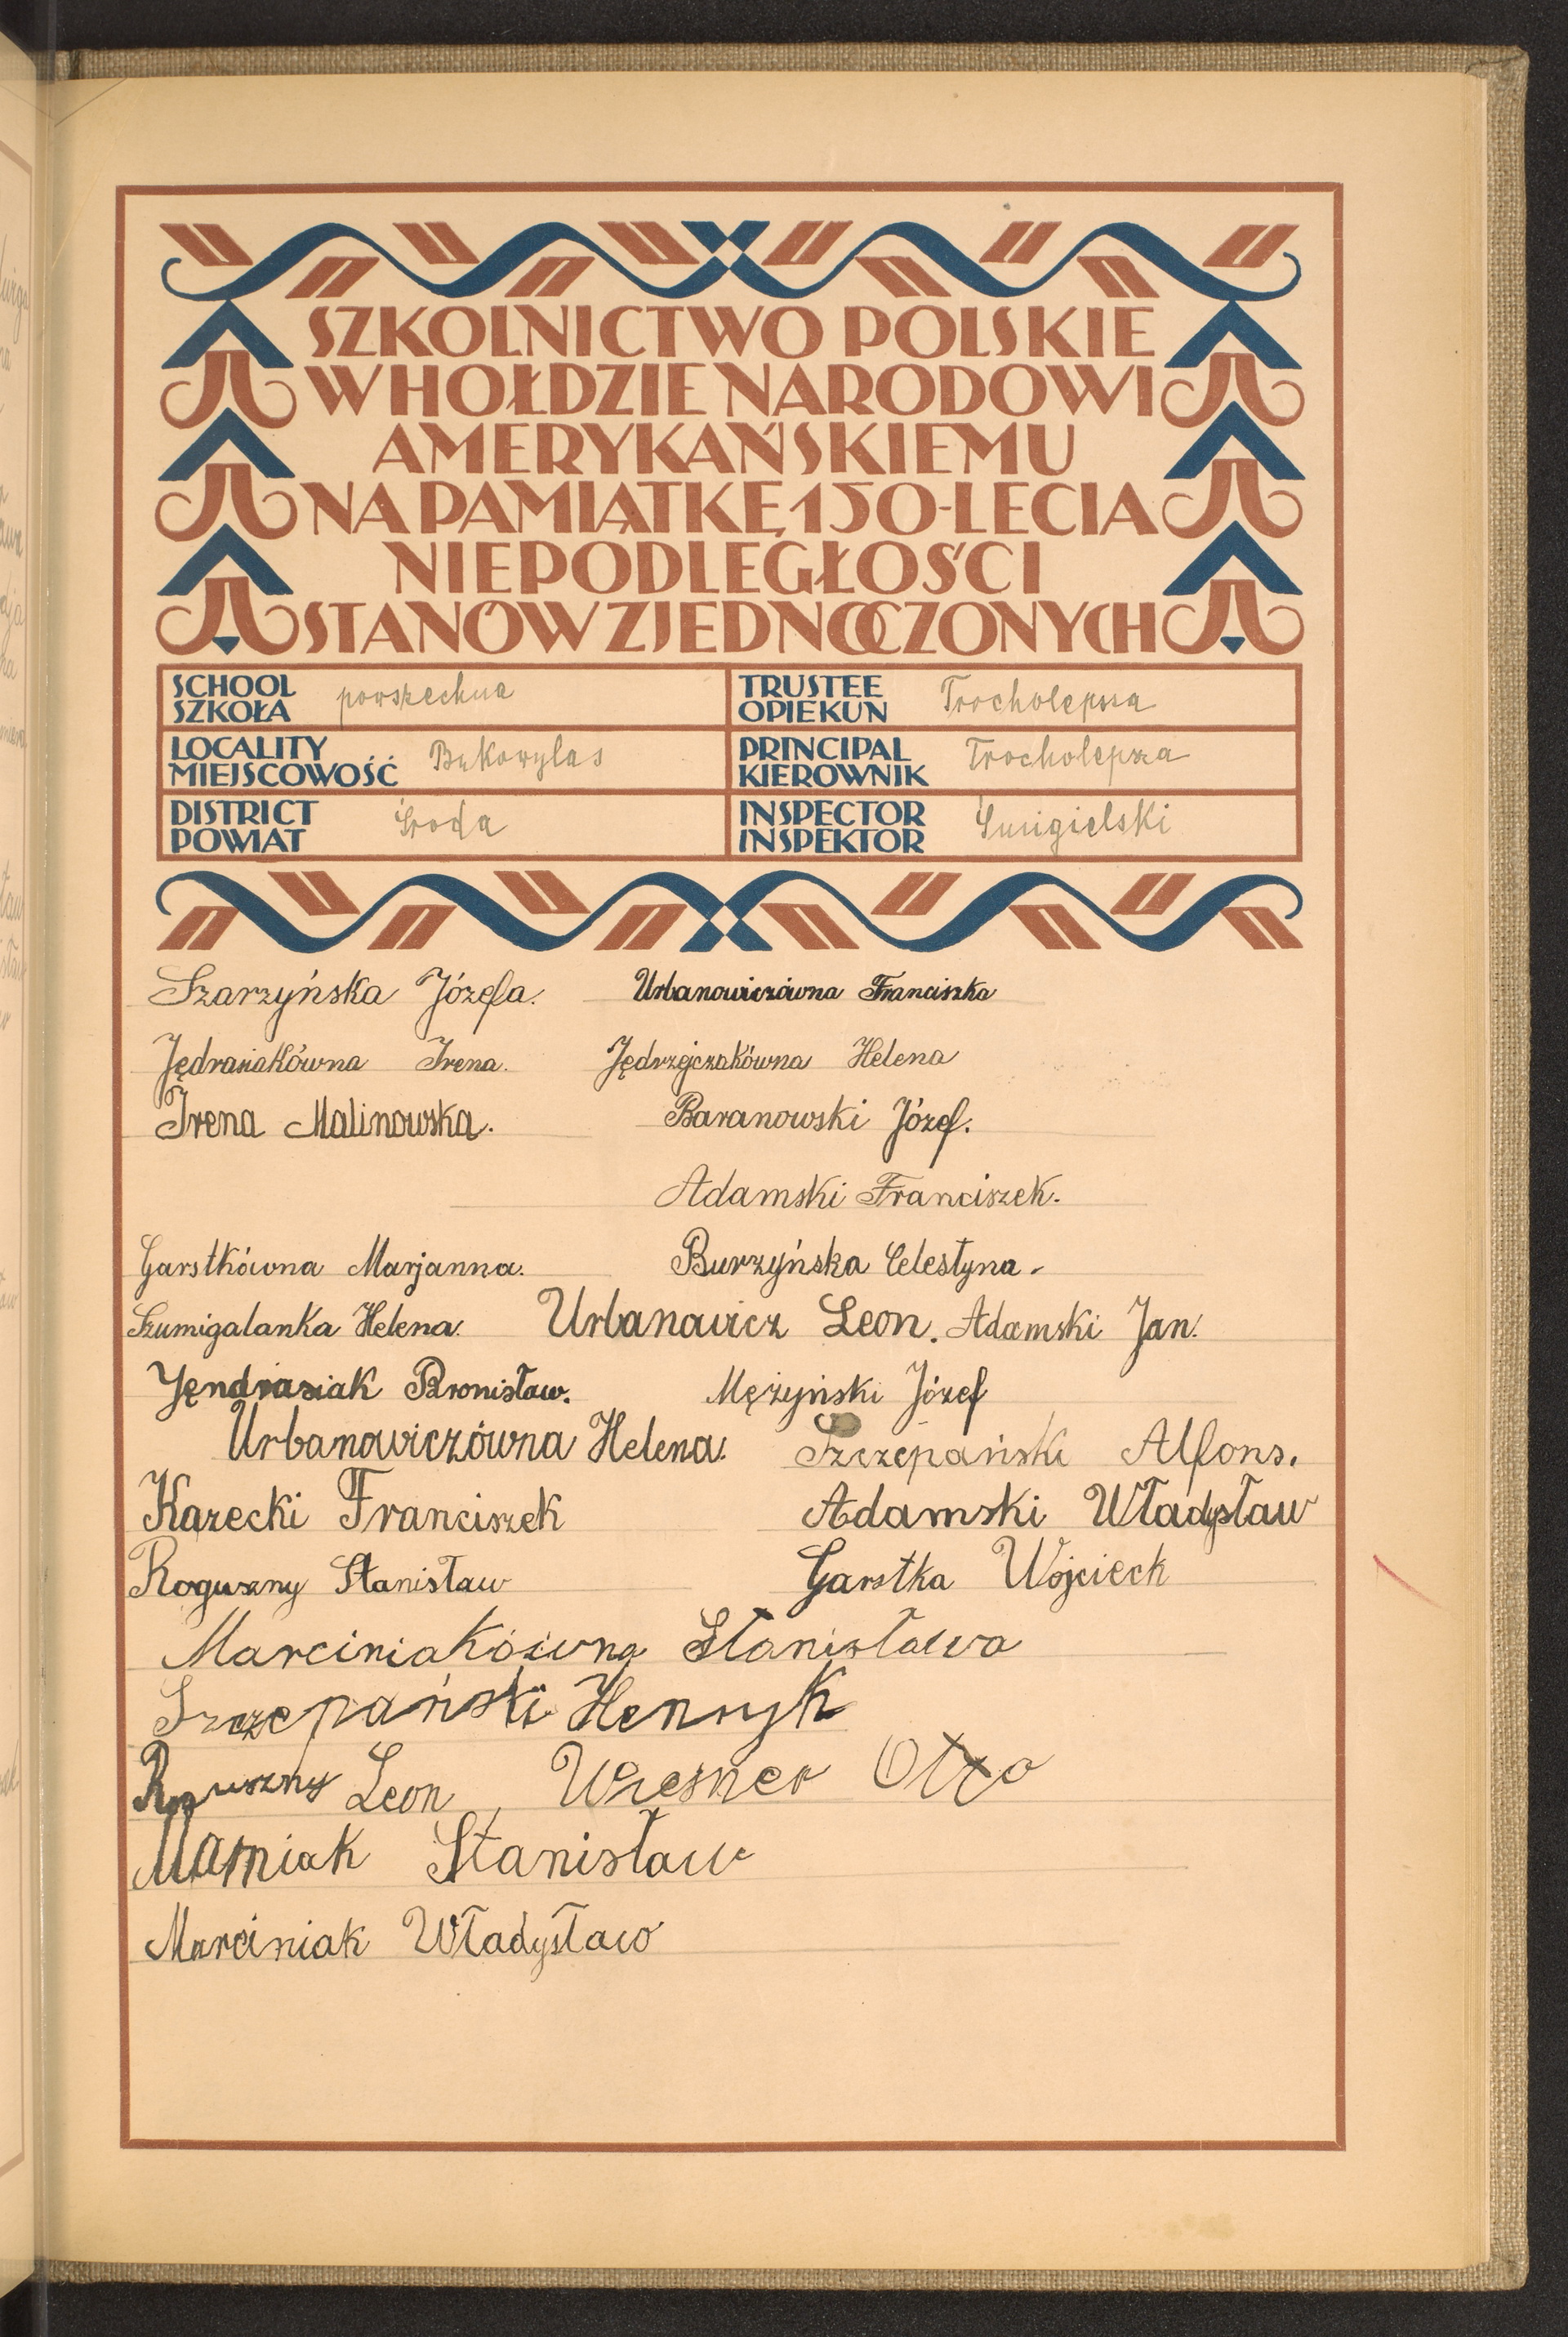 SZKOLNICTWO POLSKIE
W HOŁDZIE NARODOWI
AMERYKAŃSKIEMU
NA PAMIĄTKĘ 150-LECIA
NIEPODLEGŁOŚCI
STANÓW ZJEDNOCZONYCH
SCHOOL
SZKOŁA powszechna
TRUSTEE
OPIEKUN Trocholepsza
LOCALITY
MIEJSCOWOŚĆ Bukowylas
PRINCIPAL
KIEROWNIK Trocholepsza
DISTRICT
POWIAT Środa
INSPECTOR
INSPEKTOR Śmigielski
Szarzyńska Józefa. Urbanowiczówna Franciszka
Jędrasiakówna Irena. Jędrzejczakówna Helena
Irena Malinowska. Baranowski Józef.
Adamski Franciszek.
Garstkówna Marjanna. Burzyńska Celestyna.
Szumigalanka Helena. Urbanowicz Leon. Adamski Jan.
Jędrasiak Bronisław. Mężyński Józef
Urbanowiczówna Helena. Szczepański Alfons.
Kazecki Franciszek Adamski Władysław
Roguszny Stanisław Garstka Wojciech
Marciniakówna Stanisława
Szczepański Henryk
Roguszny Leon, Otto
Stanisław
Marciniak Władysław